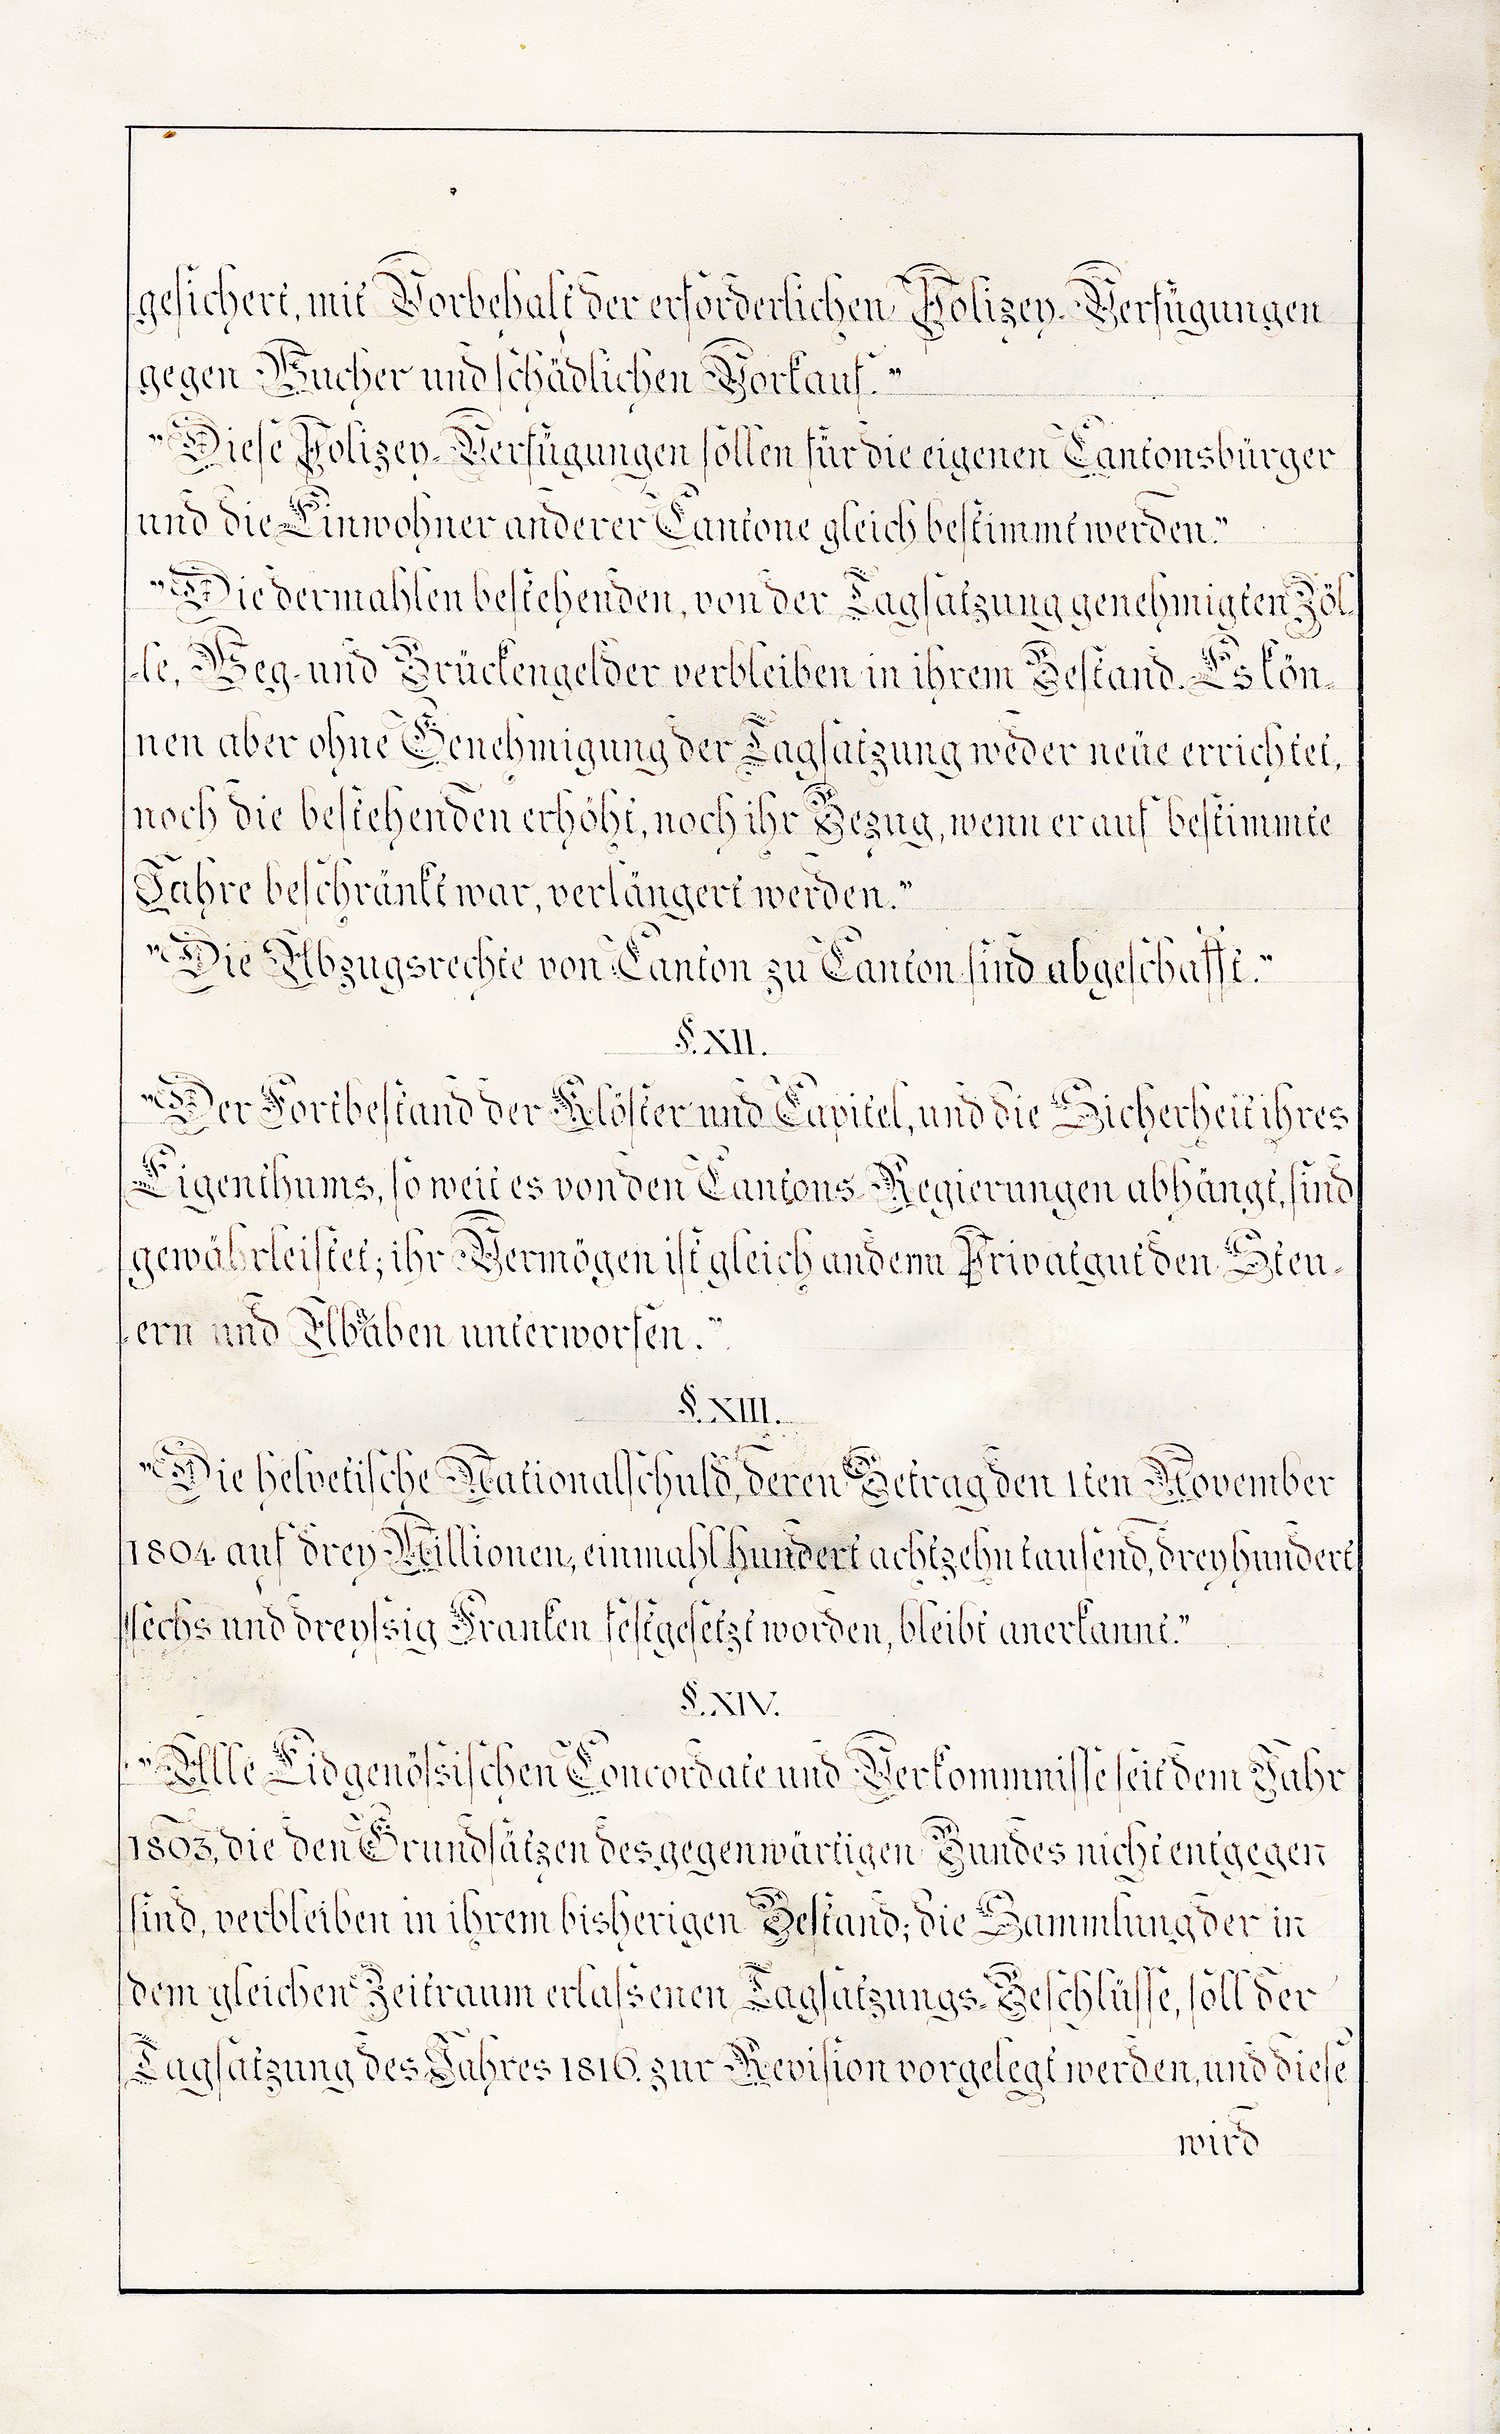 gesichert, mit Vorbehalt der erforderlichen Polizey-Verfügungen
gegen Wucher und schädlichen Vorkauf."
"Diese Polizey-Verfügungen sollen für die eigenen Cantonsbürger
und die Einwohner anderer Cantone gleich bestimmt werden."
"Die dermahlen bestehenden, von der Tagsatzung genehmigten Zöl-
-le, Weg- und Brückengelder verbleiben in ihrem Bestand. Es kön-
nen aber ohne Genehmigung der Tagsatzung weder neüe errichtet,
noch die bestehenden erhöht, noch ihr Bezug, wenn er auf bestimmte
Jahre beschränkt war, verlängert werden."
"Die Abzugsrechte von Canton zu Canton sind abgeschafft."
§. XII.
"Der Fortbestand der Klöster und Capitel, und die Sicherheit ihres
Eigenthums, so weit es von den Cantons-Regierungen abhängt, sind
gewährleistet; ihr Vermögen ist gleich anderm Privatgut den Steu-
-ern und Abgaben unterworfen."
§. XIII.
"Die helvetische Nationalschuld, deren Betrag den 1ten November
1804 auf drey Millionen, einmahl hundert achtzehn tausend, dreyhundert
sechs und dreyssig Franken festgesetzt worden, bleibt anerkannt."
§. XIV.
"Alle Eidgenössischen Concordate und Verkommnisse seit dem Jahr
1803, die den Grundsätzen des gegenwärtigen Bundes nicht entgegen
sind, verbleiben in ihrem bisherigen Bestand; die Sammlung der in
dem gleichen Zeitraum erlassenen Tagsatzungs-Beschlüsse, soll der
Tagsatzung des Jahres 1816. zur Revision vorgelegt werden, und diese
wird